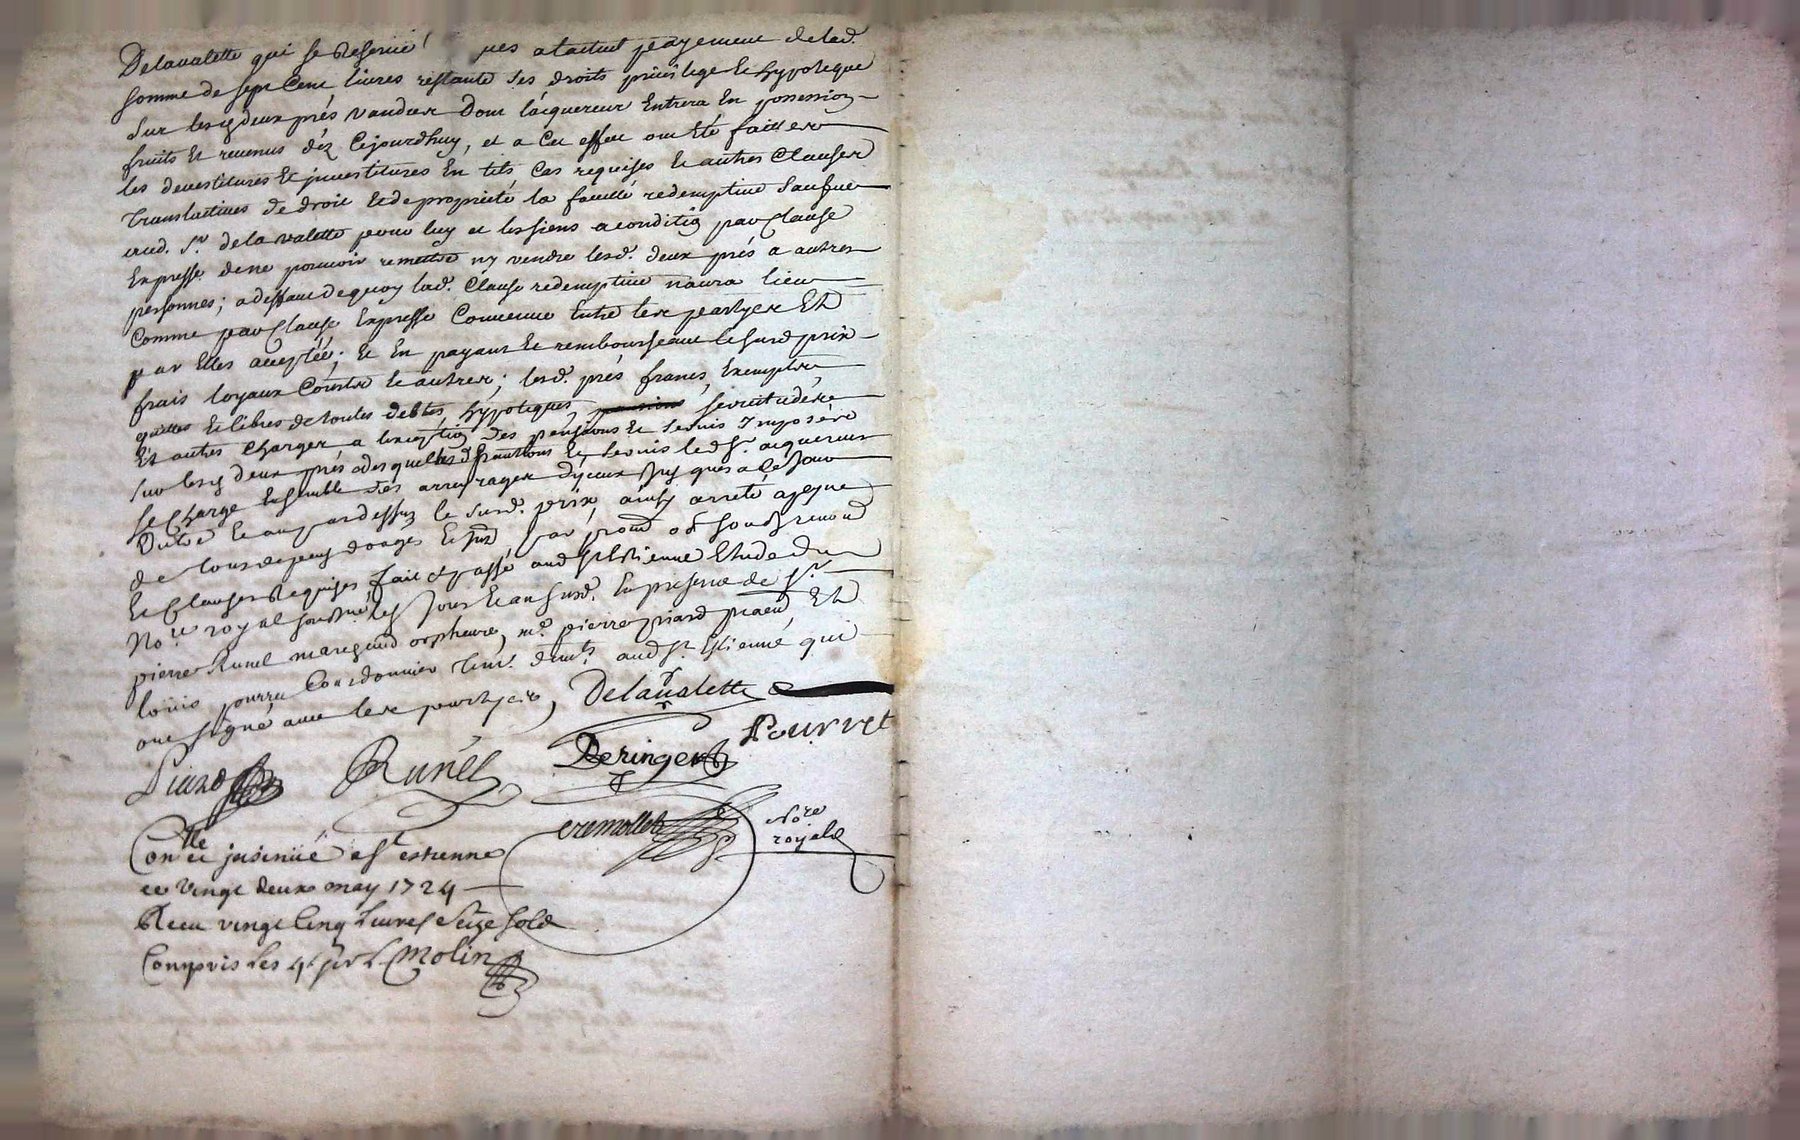 Delavalette qui se Reserve jusques alactuel payement delad.
somme de sept Cent livres restante ses droits privilege et hypoteque
sur lesd deux prés vandus Dont lacquereur Entrera En possession
fruits et revenus déz Cejourdhuy, et a Cet effet ont été faittes
les devestitures et jnvestitures En tels Cas requises et autres Clauses
translatives de droit et de proprieté la faculté redemptive Sauf
aud. Sr. delavalette pour luy et les siens a condition par Clause
Expresse de ne pouvoir remettre ny vendre lesd. deux prés a autres
personnes; a deffaut de quoy lad. Clause redemptive naura lieu
Comme par Clause Expresse Convenue Entre les partyes Et
par Elles acceptée; et En payant et remboursant le susd prix
frais loyaux Cousts et autres; lesd. prés francs, Exempts,
quittes et libres de toutes debtes, hypoteques, servitudes
Et autres Charges a lexception des pensions et servis Imposés
sur lesd deux prés desquelles pensions et servis led Sr. acquereur
se Charge Ensemble des arreyrages dyceux jusques a Ce jour
Outre et par dessus le susd. prix, ainsy arreté a peyne
de tous depens domages et
et Clauses Requises, fait et passé aud St Etienne Etude du
Nore. royal soussné. les jour et an susd. En presence de Sr.
pierre Runel marchand orphevre, me. pierre piard praen, Et
louis pourret Cordonnier temt. demts. aud St. Etienne qui
ont signé avec les partyes, Delavalette
Pourret
Piard Runel Deringer
cremollet Nore royale
Conlle et jnsinué a St estienne
ce vingt deux may 1724
Receu vingt Cinq Livres seize sols
Compris les 4s pr L. Molin